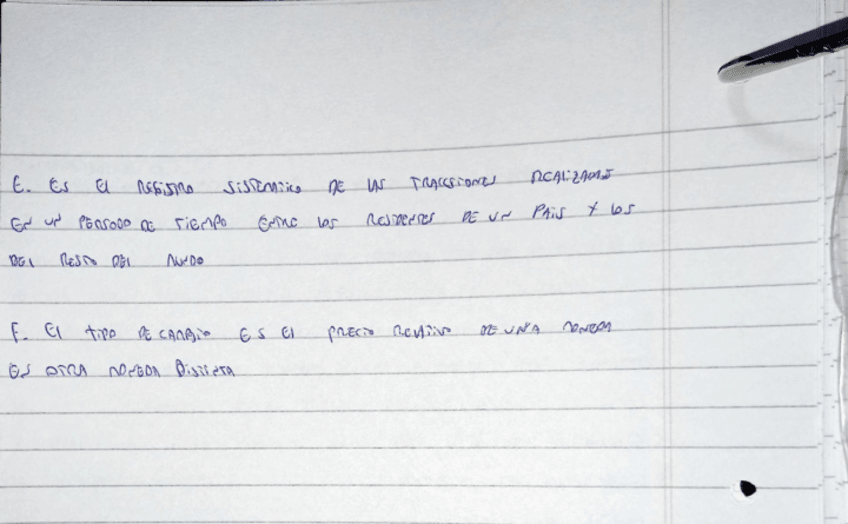 E. ES El REGISTRO SISTEMATICO DE LAS TRACCSIONES REALIZADAS
EN UN PERIODO DE TIEMPO ENTRE LOS RESIDENTES DE UN PAIS Y LOS
DEL RESTO DEL MUNDO
F. El TIPO DE CAMBIO ES El PRECIO RELATIVO DE UNA MONEDA
EN OTRA MONEDA DISTINTA